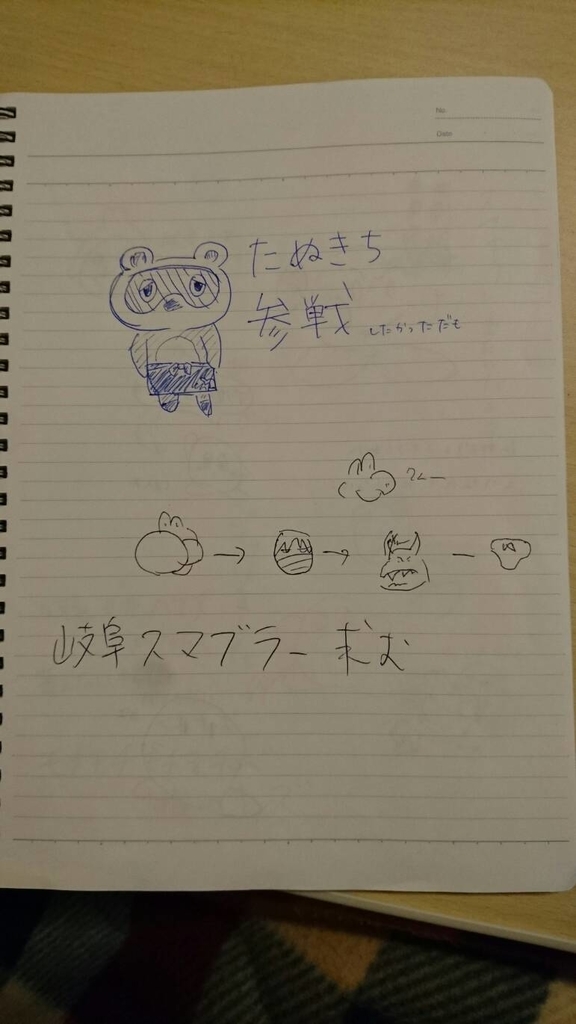 No.
Date
たぬきち
参戦 したかっただも
岐阜スマブラー求む